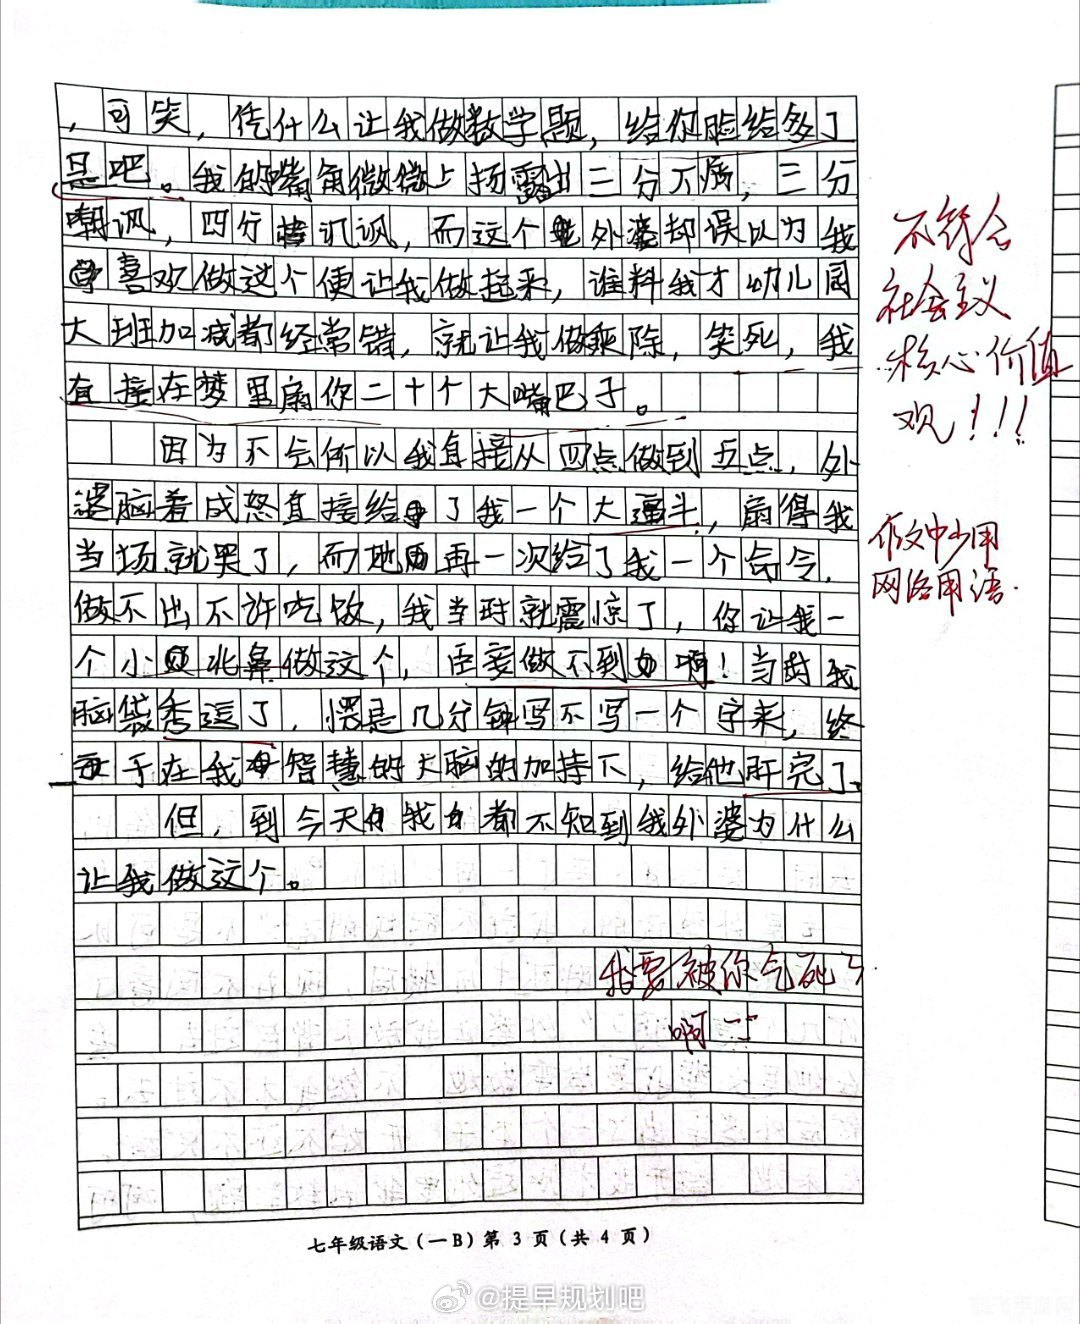 ，可笑，凭什么让我做数学题，给你脸给多了
是吧。我的嘴角微微上扬露出三分不屑，三分
嘲讽，四分讥讽，而这个外婆却误以为我
喜欢做这个便让我做起来，谁料我才幼儿园
大班加减都经常错，就让我做乘除，笑死，我
直接在梦里扇你二十个大嘴巴子。
因为不会所以我直接从四点做到五点，外
婆脑羞成怒直接给了我一个大逼斗，扇得我
当场就哭了，而她再一次给了我一个命令，
做不出不许吃饭，我当时就震惊了，你让我一
个小北鼻做这个，臣妾做不到啊！当时我
脑袋秀逗了，愣是几分钟写不写一个字来，终
于在我智慧的大脑的加持下，给他肝完了。
但，到今天我都不知到我外婆为什么
让我做这个。
不符合
社会主义
核心价值
观！！！
作文中少用
网络用语.
我要被你气死了
啊
七年级语文(一B)第 3 页(共 4 页)
@提早规划吧